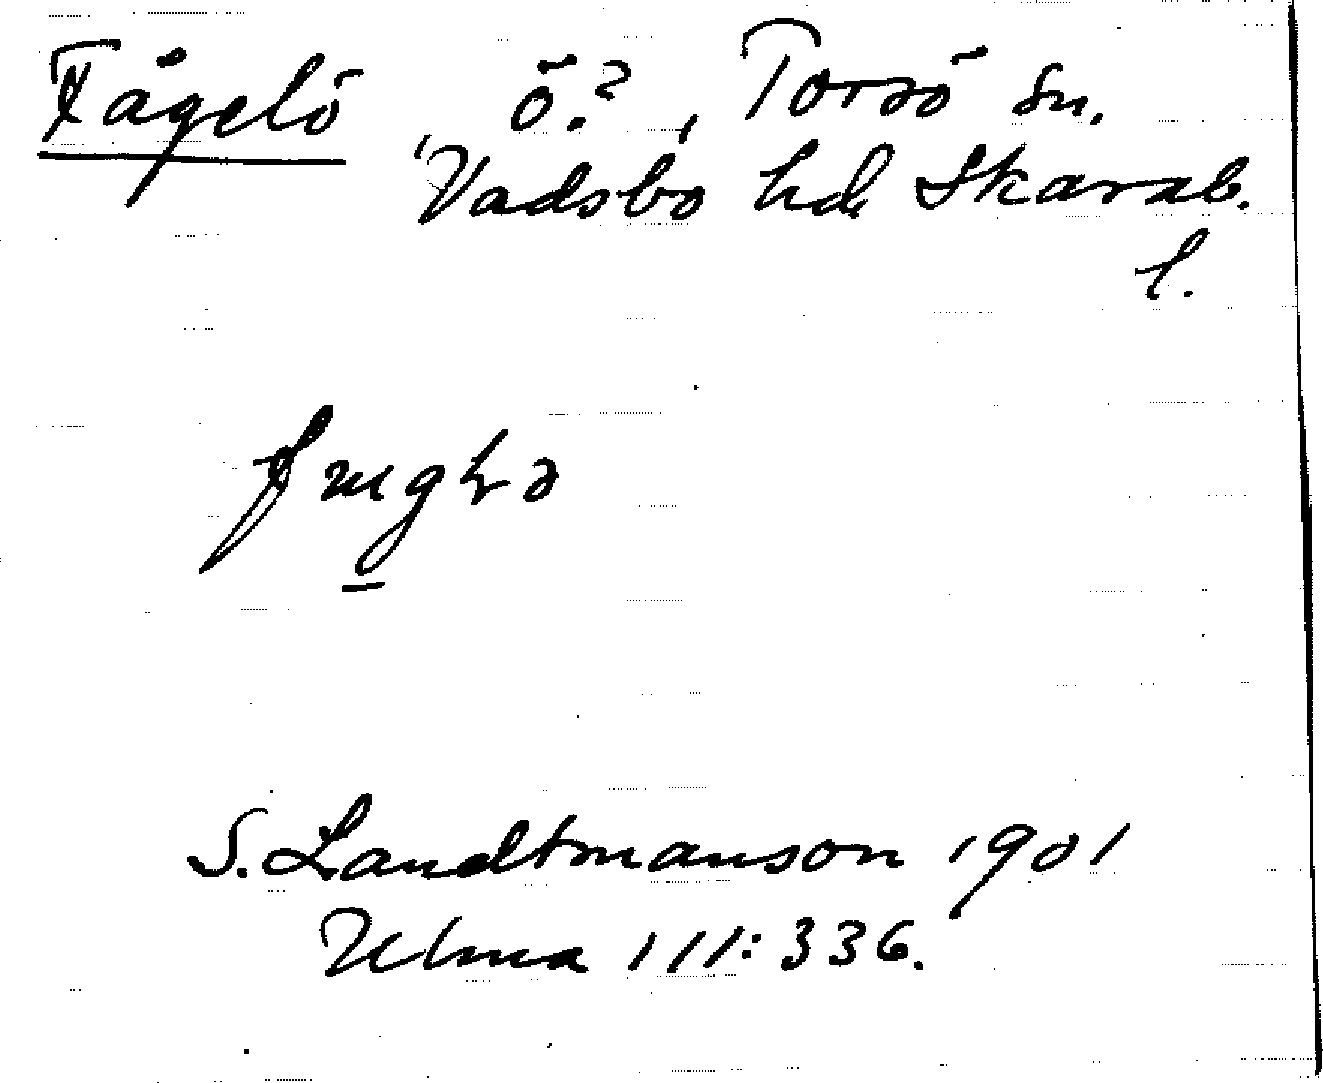 Fågelö ö.?, Torsö sn.
Vadsbo hd, Skarab.
l.
S. Landtmanson 1901
Ulma 111:336.